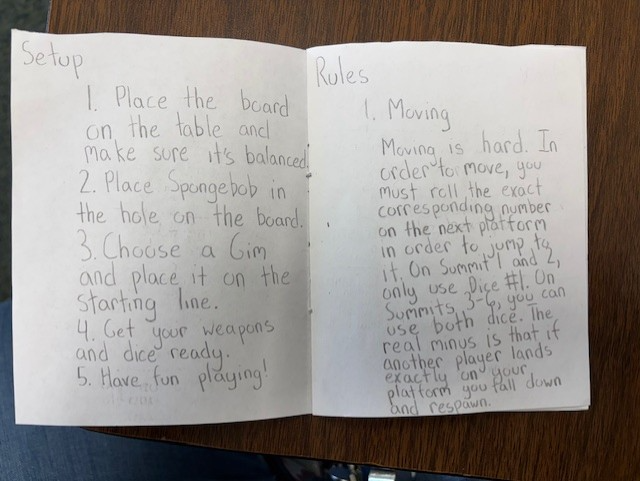 Setup
1. Place the board
on the table and
make sure it's balanced.
2. Place Spongebob in
the hole on the board.
3. Choose a Gim
and place it on the
starting line.
4. Get your weapons
and dice ready.
5. Have fun playing!
Rules
1. Moving
Moving is hard. In
order to move, you
must roll the exact
corresponding number
on the next platform
in order to jump to
it. On Summit 1 and 2,
only use Dice #1. On
Summits 3-6, you can
use both dice. The
real minus is that if
another player lands
exactly on your
platform you fall down
and respawn.